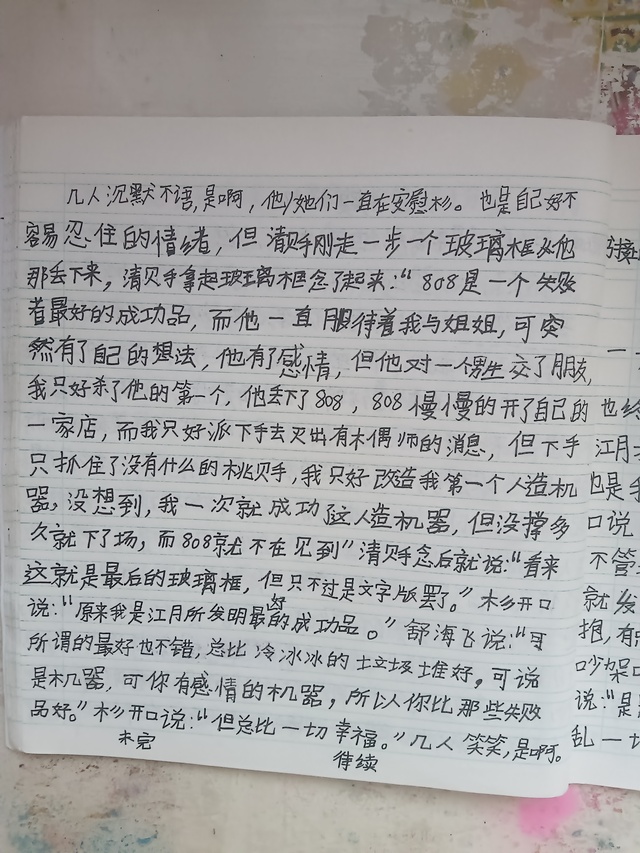 几人沉默不语,是啊,他/她们一直在安慰杉。也是自己好不
容易忍住的情绪,但清贝手刚走一步一个玻璃框从他
那丢下来,清贝手拿起玻璃框念了起来:“808是一个失败
者最好的成功品,而他一直服待着我与姐姐,可突
然有了自己的想法,他有了感情,但他对一个男生交了朋友,
我只好杀了他的第一个,他丢下了808,808慢慢的开了自己的
一家店,而我只好派下手去灭出有木偶师的消息,但下手
只抓住了没有什么的桃贝手,我只好改造我第一个人造机
器,没想到,我一次就成功了这人造机器,但没撑多
久就下了场,而808就不在见到”清贝手念后就说:“看来
这就是最后的玻璃框,但只不过是文字版罢了。”杉开口
说:“原来我是江月所发明最好的成功品。”舒海飞说:“可
所谓的最好也不错,总比冷冰冰的垃圾堆好,可说
是机器,可你有感情的机器,所以你比那些失败
品好。”杉开口说:“但总比一切幸福。”几人笑笑,是啊。
未完
待续
一
也给
江月
也是我
口说
不管
就发
抱,有
吵架口
说:“是
乱一切